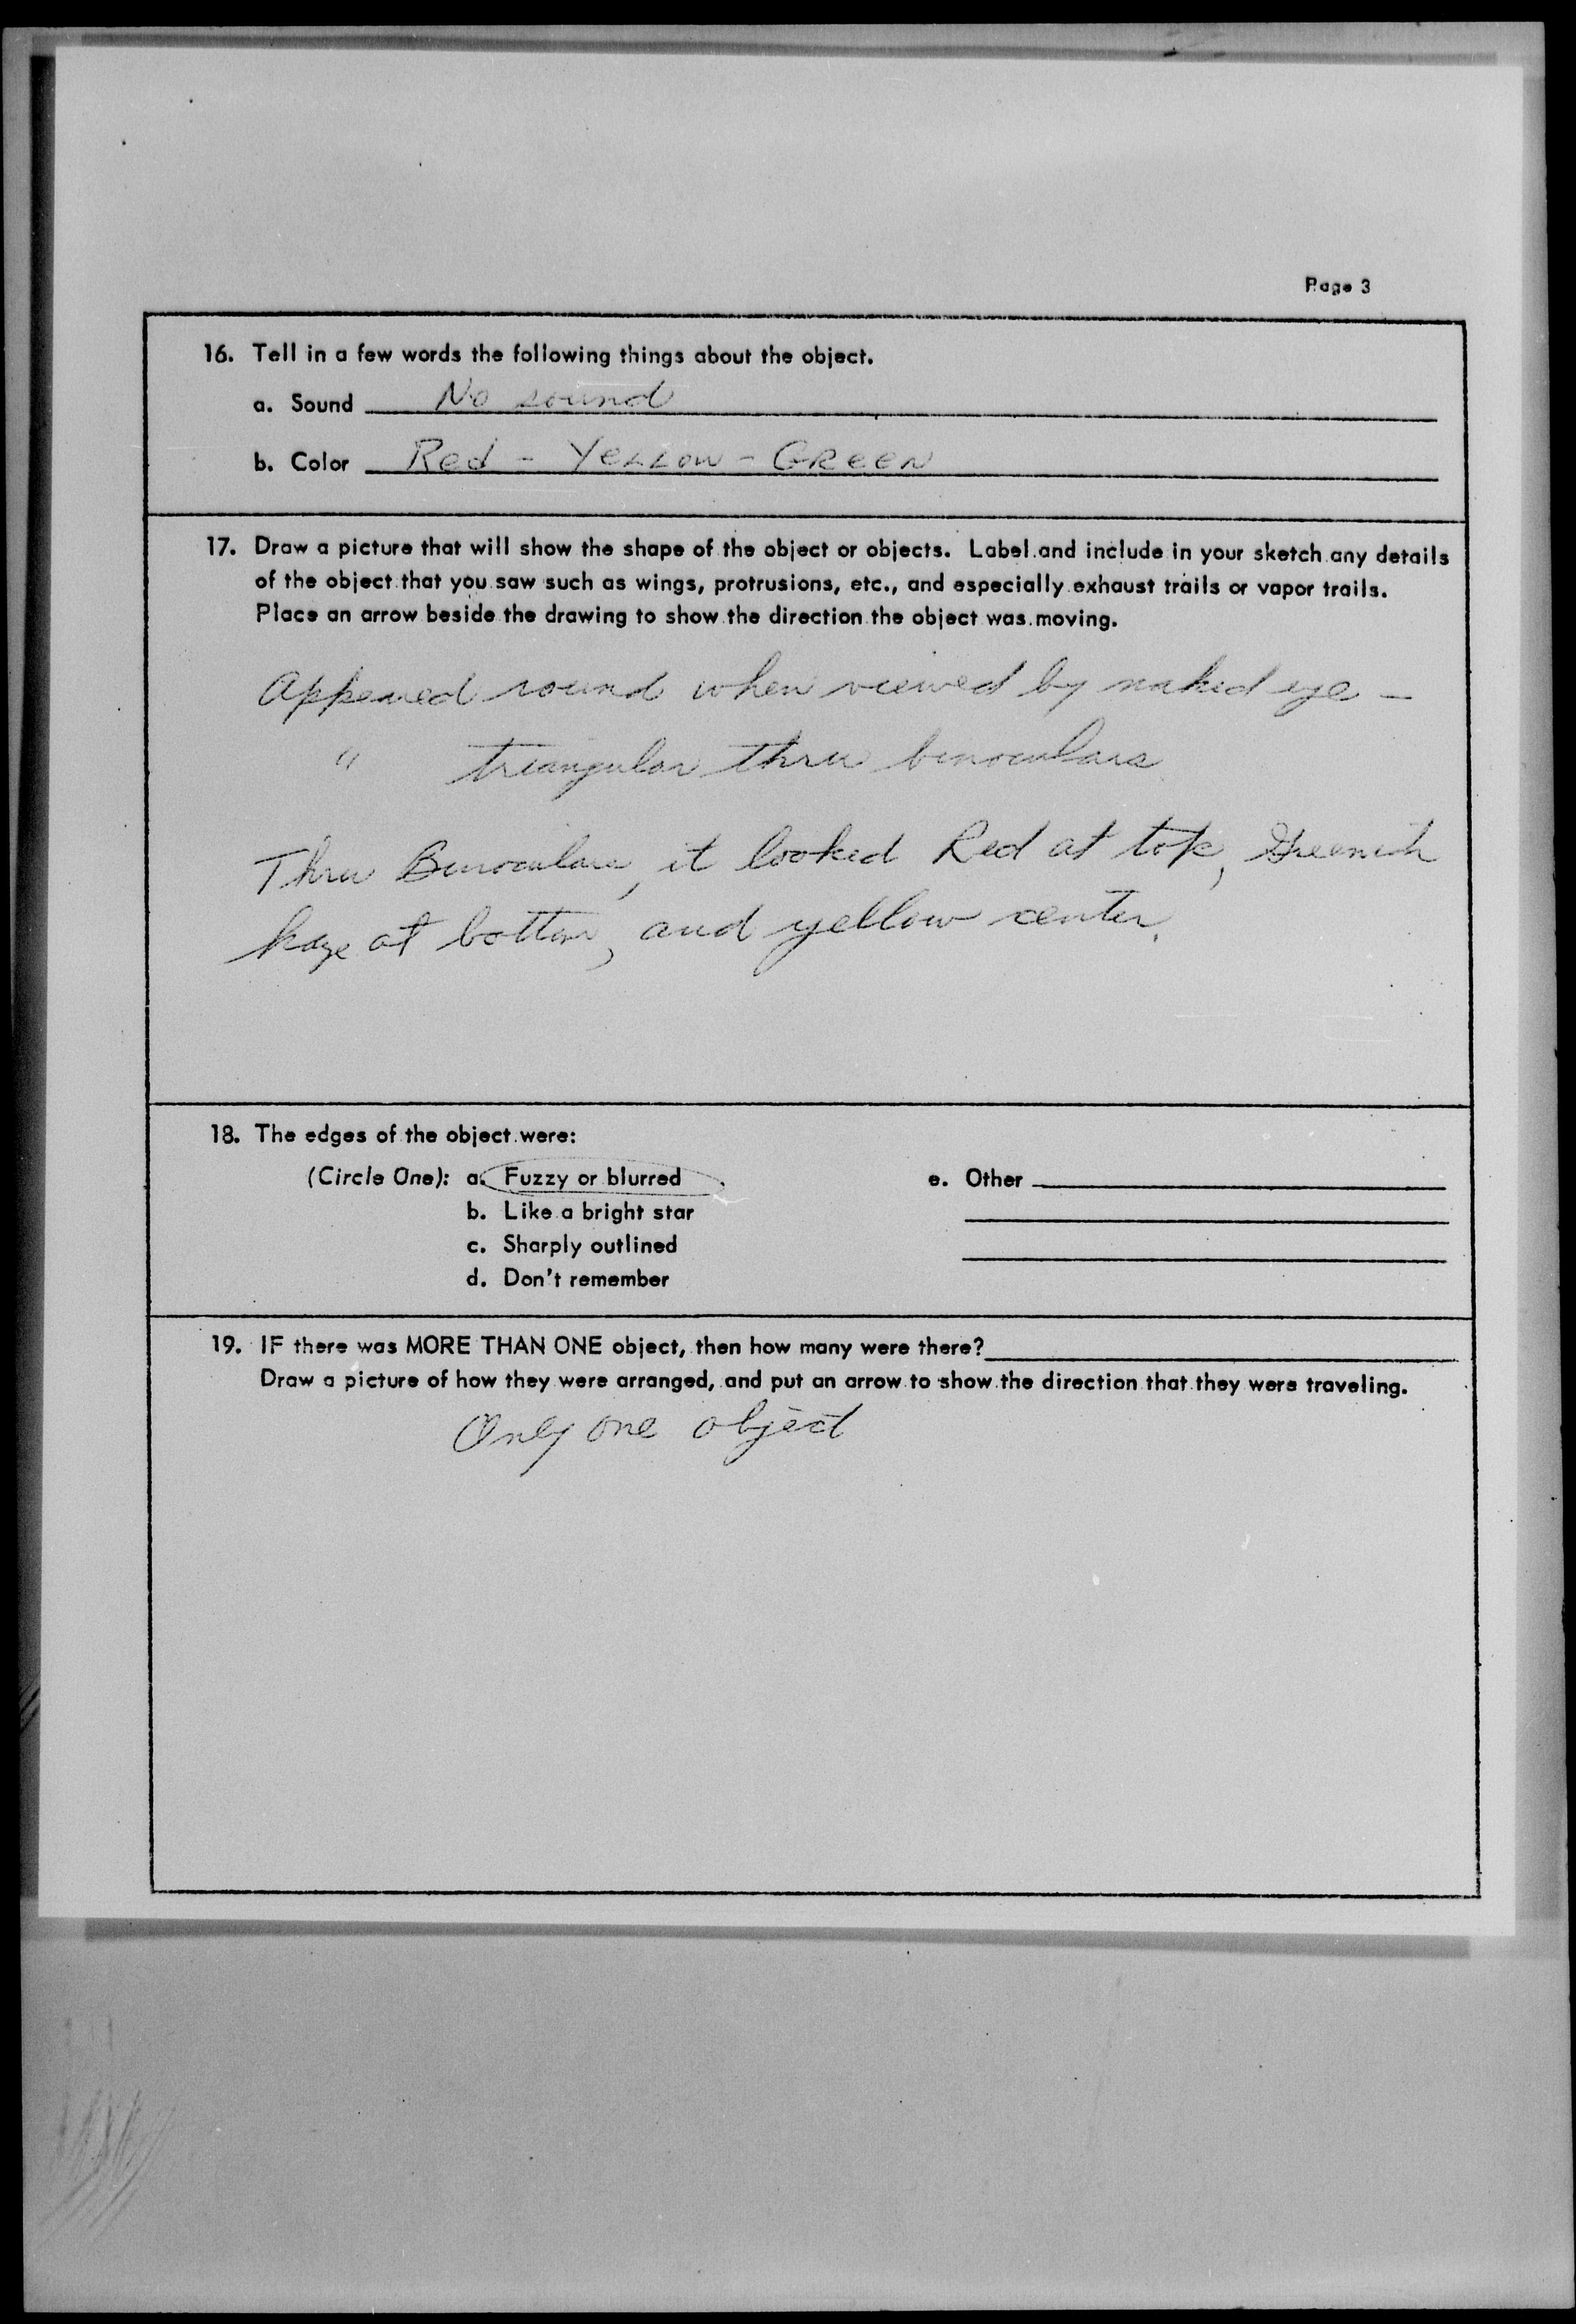 Page 3
16. Tell in a few words the following things about the object.
a. Sound No sound
b. Color Red - Yellow - Green
17. Draw a picture that will show the shape of the object or objects. Label and include in your sketch any details
of the object that you saw such as wings, protrusions, etc., and especially exhaust trails or vapor trails.
Place an arrow beside the drawing to show the direction the object was moving.
Appeared round when viewed by naked eye -
" triangular thru binoculars
Thru Binoculars, it looked Red at top, Greenish
haze at bottom, and yellow center.
18. The edges of the object were:
(Circle One): a. Fuzzy or blurred
b. Like a bright star
c. Sharply outlined
d. Don't remember
e. Other
19. IF there was MORE THAN ONE object, then how many were there?
Draw a picture of how they were arranged, and put an arrow to show the direction that they were traveling.
Only one object